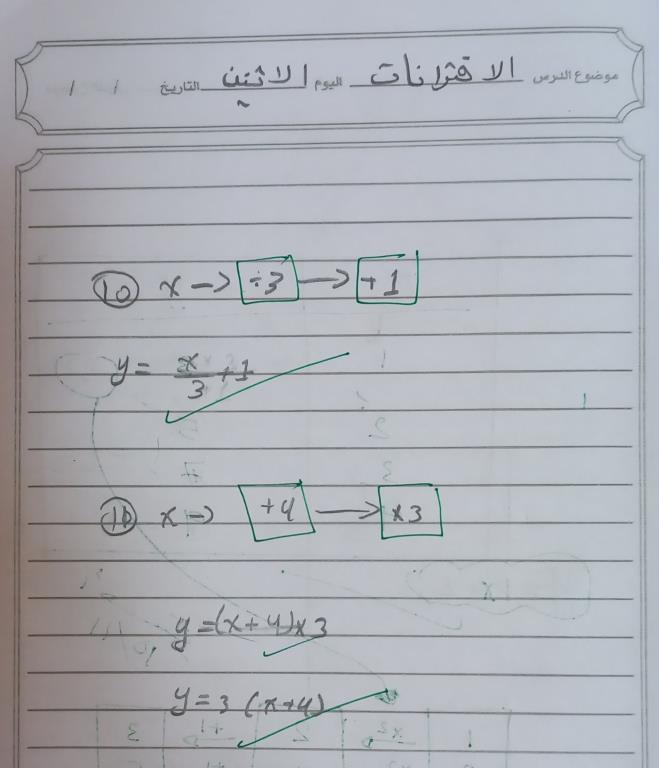 موضوع الدرس الاقترانات اليوم الاثنين التاريخ / /
10 x → ÷3 → +1
y = x/3 + 1
x → +4 → ×3
y = (x+4)×3
y = 3 (x+4)